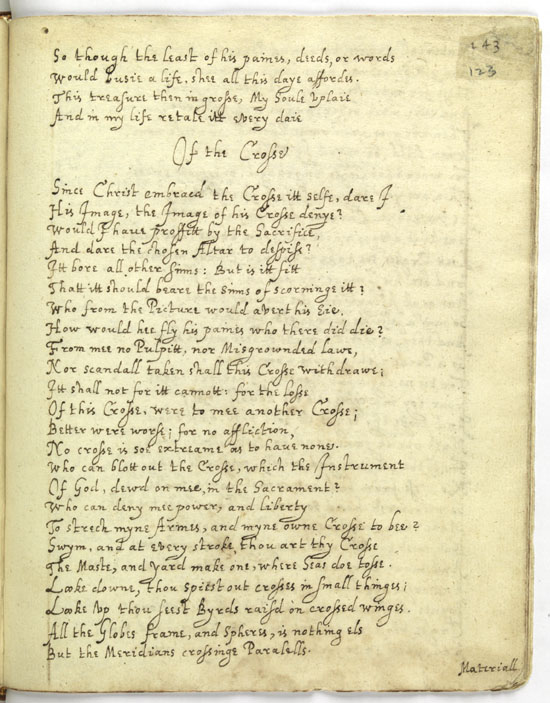 143
123
So though the least of his paines, deeds, or words
Would busie a life, shee all this daye affordes.
This treasure then in grosse, My Soule uplaie
And in my life retale itt every daie
Of the Crosse
Since Christ embraced the Crosse itt selfe, dare I
His Image, the Image of his Crosse denye?
Would I have proffitt by the Sacrifice,
And dare the chosen Altar to despise?
Itt bore all other sinns: But is itt fitt
Thatt itt should beare the sinns of scorninge itt?
Who from the Picture would avert his Eie,
How would hee fly his paines who there did die?
From mee no Pulpitt, nor Misgrownded lawe,
Nor scandall taken shall this Crosse withdrawe;
Itt shall not for itt cannott: for the losse
Of this Crosse, were to mee another Crosse;
Better were worse; for no affliction,
No crosse is soe extreame as to have none.
Who can blott out the Crosse, which the Instrument
Of God, dewd on mee, in the Sacrament?
Who can deny mee power, and liberty
To strech myne Armes, and myne owne Crosse to bee?
Swym, and at every stroke, thou art thy Crosse
The Maste, and yard make one, where Seas doe tosse.
Looke downe, thou spiest out crosses in small thinges;
Looke up thou seest Byrds raisd on crossed winges.
All the Globes frame, and Spheres, is nothing els
But the Meridians crossinge Paralells.
Materiall